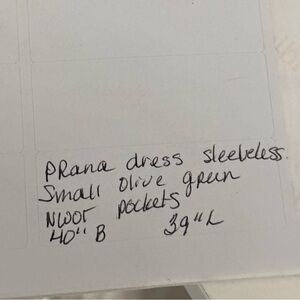 PRana dress sleeveless.
Small olive green
NWOT pockets
40" B 39" L